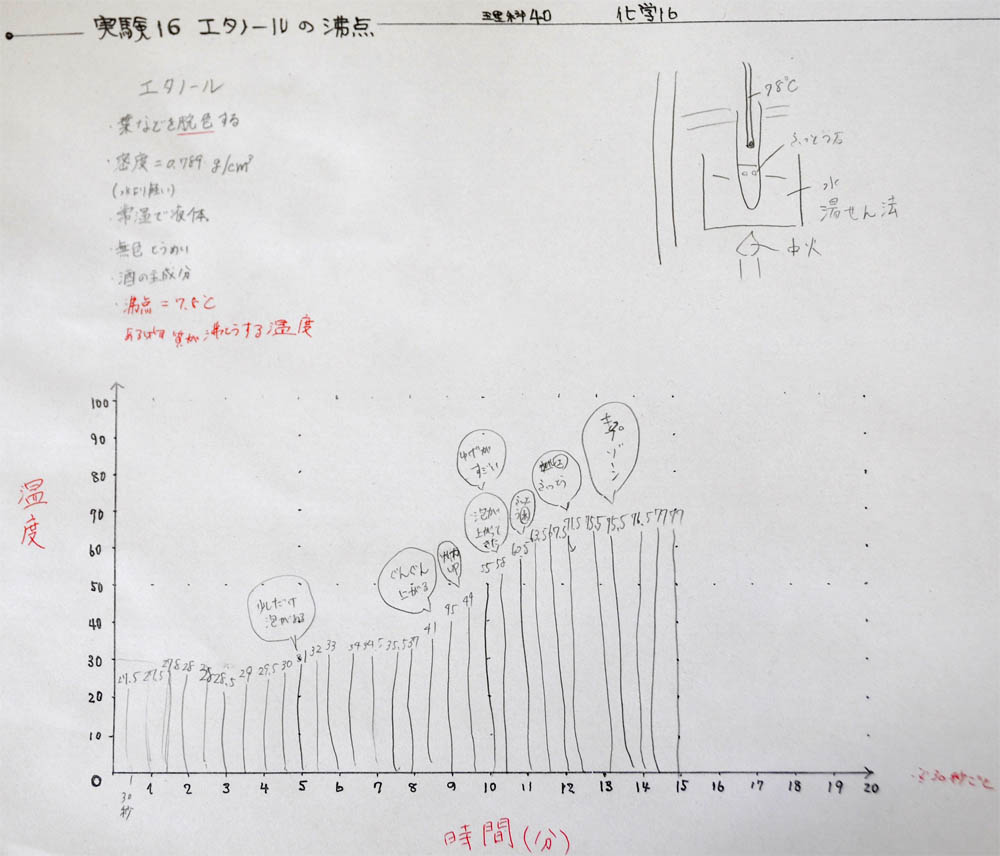 実験16 エタノールの沸点
理科40
化学16
エタノール
・葉などを脱色する
・密度=0.789 g/cm³
(水より軽い)
・常温で液体
・無色とうめい
・酒の主成分
・沸点=7.8℃
ある物質が沸とうする温度
78℃
ふっとう石
水
湯せん法
中火
温度
100
90
80
70
60
50
40
30
20
10
0
少しだけ
泡がある
ぐんぐん
上がる
ゆげが
すごい
泡が
上がって
きた
ふっとう
ゾーン
27.5 27.5 27.8 28 28 28.5 29 29.5 30 31 32 33 34 34.5 35.5 37 41 45 49 55 58 60.5 63.5 67.5 71.5 75.5 75.5 76.5 77 77
30秒 1 2 3 4 5 6 7 8 9 10 11 12 13 14 15 16 17 18 19 20
30秒ごと
時間(分)